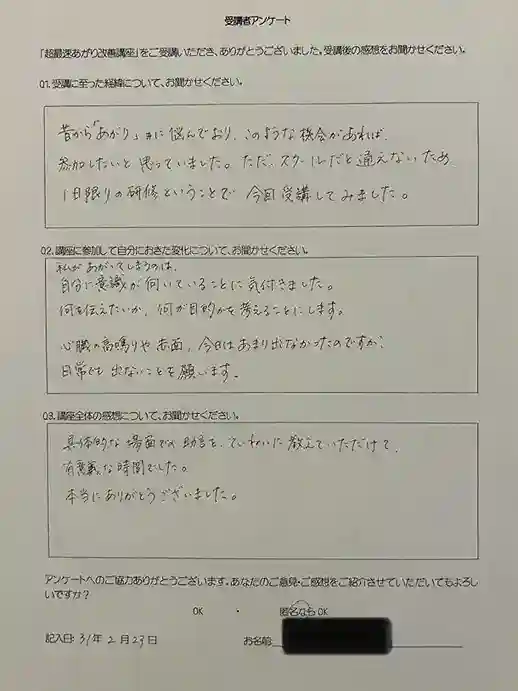 受講者アンケート
「超最速あがり改善講座」をご受講いただき、ありがとうございました。受講後の感想をお聞かせください。
Q1. 受講に至った経緯について、お聞かせください。
昔から「あがり」性に悩んでおり、このような機会があれば、
参加したいと思っていました。ただ、スクールだと通えないため
1日限りの研修ということで 今回受講してみました。
Q2. 講座に参加して自分におきた変化について、お聞かせください。
私があがってしまうのは、
自分に意識が向いていることに気付きました。
何を伝えたいか、何が目的かを考えることにします。
心臓の高鳴りや赤面、今日はあまり出なかったのですが、
日常でも出ないことを願います。
Q3. 講座全体の感想について、お聞かせください。
具体的な場面での助言を、ていねいに教えていただけて、
有意義な時間でした。
本当にありがとうございました。
アンケートへのご協力ありがとうございます。あなたのご意見・ご感想をご紹介させていただいてもよろし
いですか？
OK ・ 匿名なら OK
記入日: 31年 2月 23日 お名前: